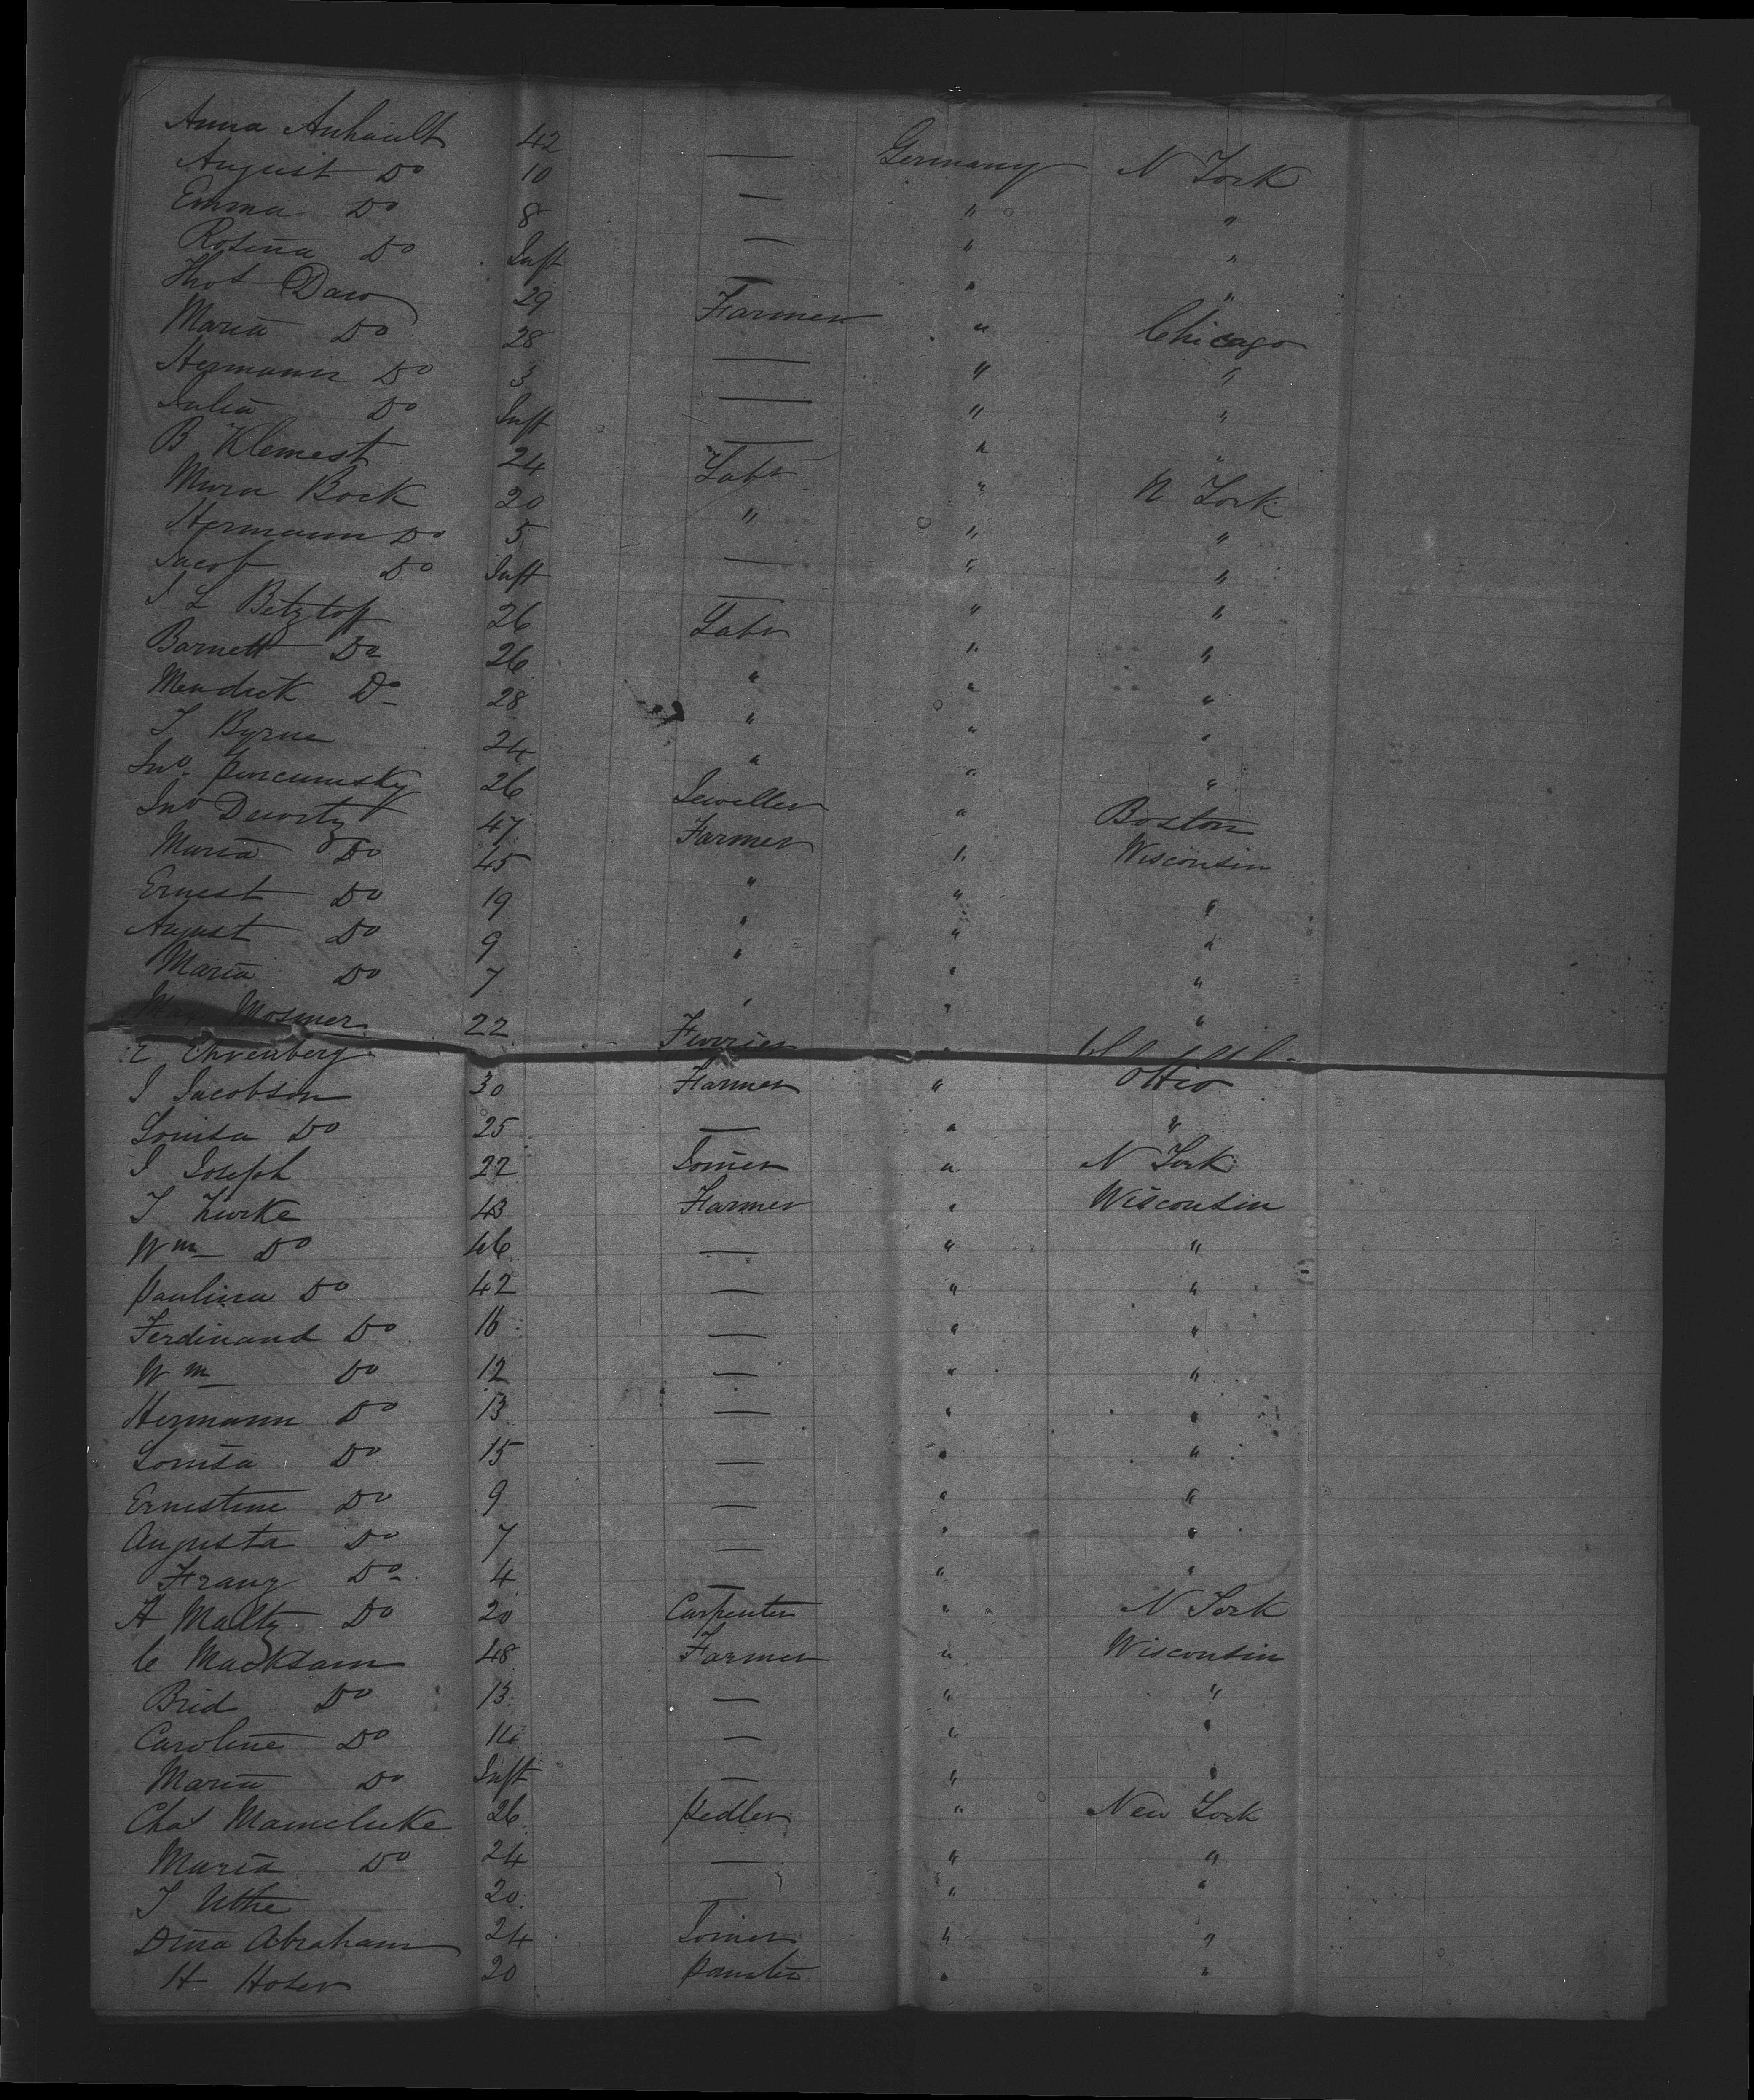 Anna Anhault 42 — Germany N York
August Do 10 — " "
Emma Do 8 — " "
Rosina Do Inft — " "
Thos Daw 29 Farmer " Chicago
Maria Do 28 — " "
Hermann Do 3 — " "
Julia Do Inft — " "
B Klemest 24 Labr " N York
Mura Bock 20 " " "
Hermann Do 5 — " "
Jacob Do Inft — " "
I L Betztoff 26 Labr " "
Barnett Do 26 " " "
Mendick Do 28 " " "
T Byrne 24 " " "
Jno. 26 Jeweller " Boston
Jno Dewitz 47 Farmer " Wisconsin
Maria Do 45 " " "
Ernest Do 19 " " "
August Do 9 " " "
Maria Do 7 " " "
Mosmer 22 Furrier "
E Ehrenberg
I Jacobson 30 Farmer " Ohio
Louisa Do 25 — " "
I Joseph 27 Joiner " N York
T Zurke 43 Farmer " Wisconsin
Wm Do 46 — " "
Paulina Do 42 — " "
Ferdinand Do 16 — " "
Wm Do 12 — " "
Hermann Do 13 — " "
Louisa Do 15 — " "
Ernestine Do 9 — " "
Augusta Do 7 — " "
Franz Do 4 — " "
A Maltz Do 20 Carpenter " N York
C Macksam 48 Farmer " Wisconsin
Brid Do 13 — " "
Caroline Do — " "
Maria Do Inft — " "
Chas Mameluke 26 Pedler " New York
Maria Do 24 — " "
T Uthe 20 — " "
Dina Abraham 24 Joiner " "
H Hoser 20 Painter " "